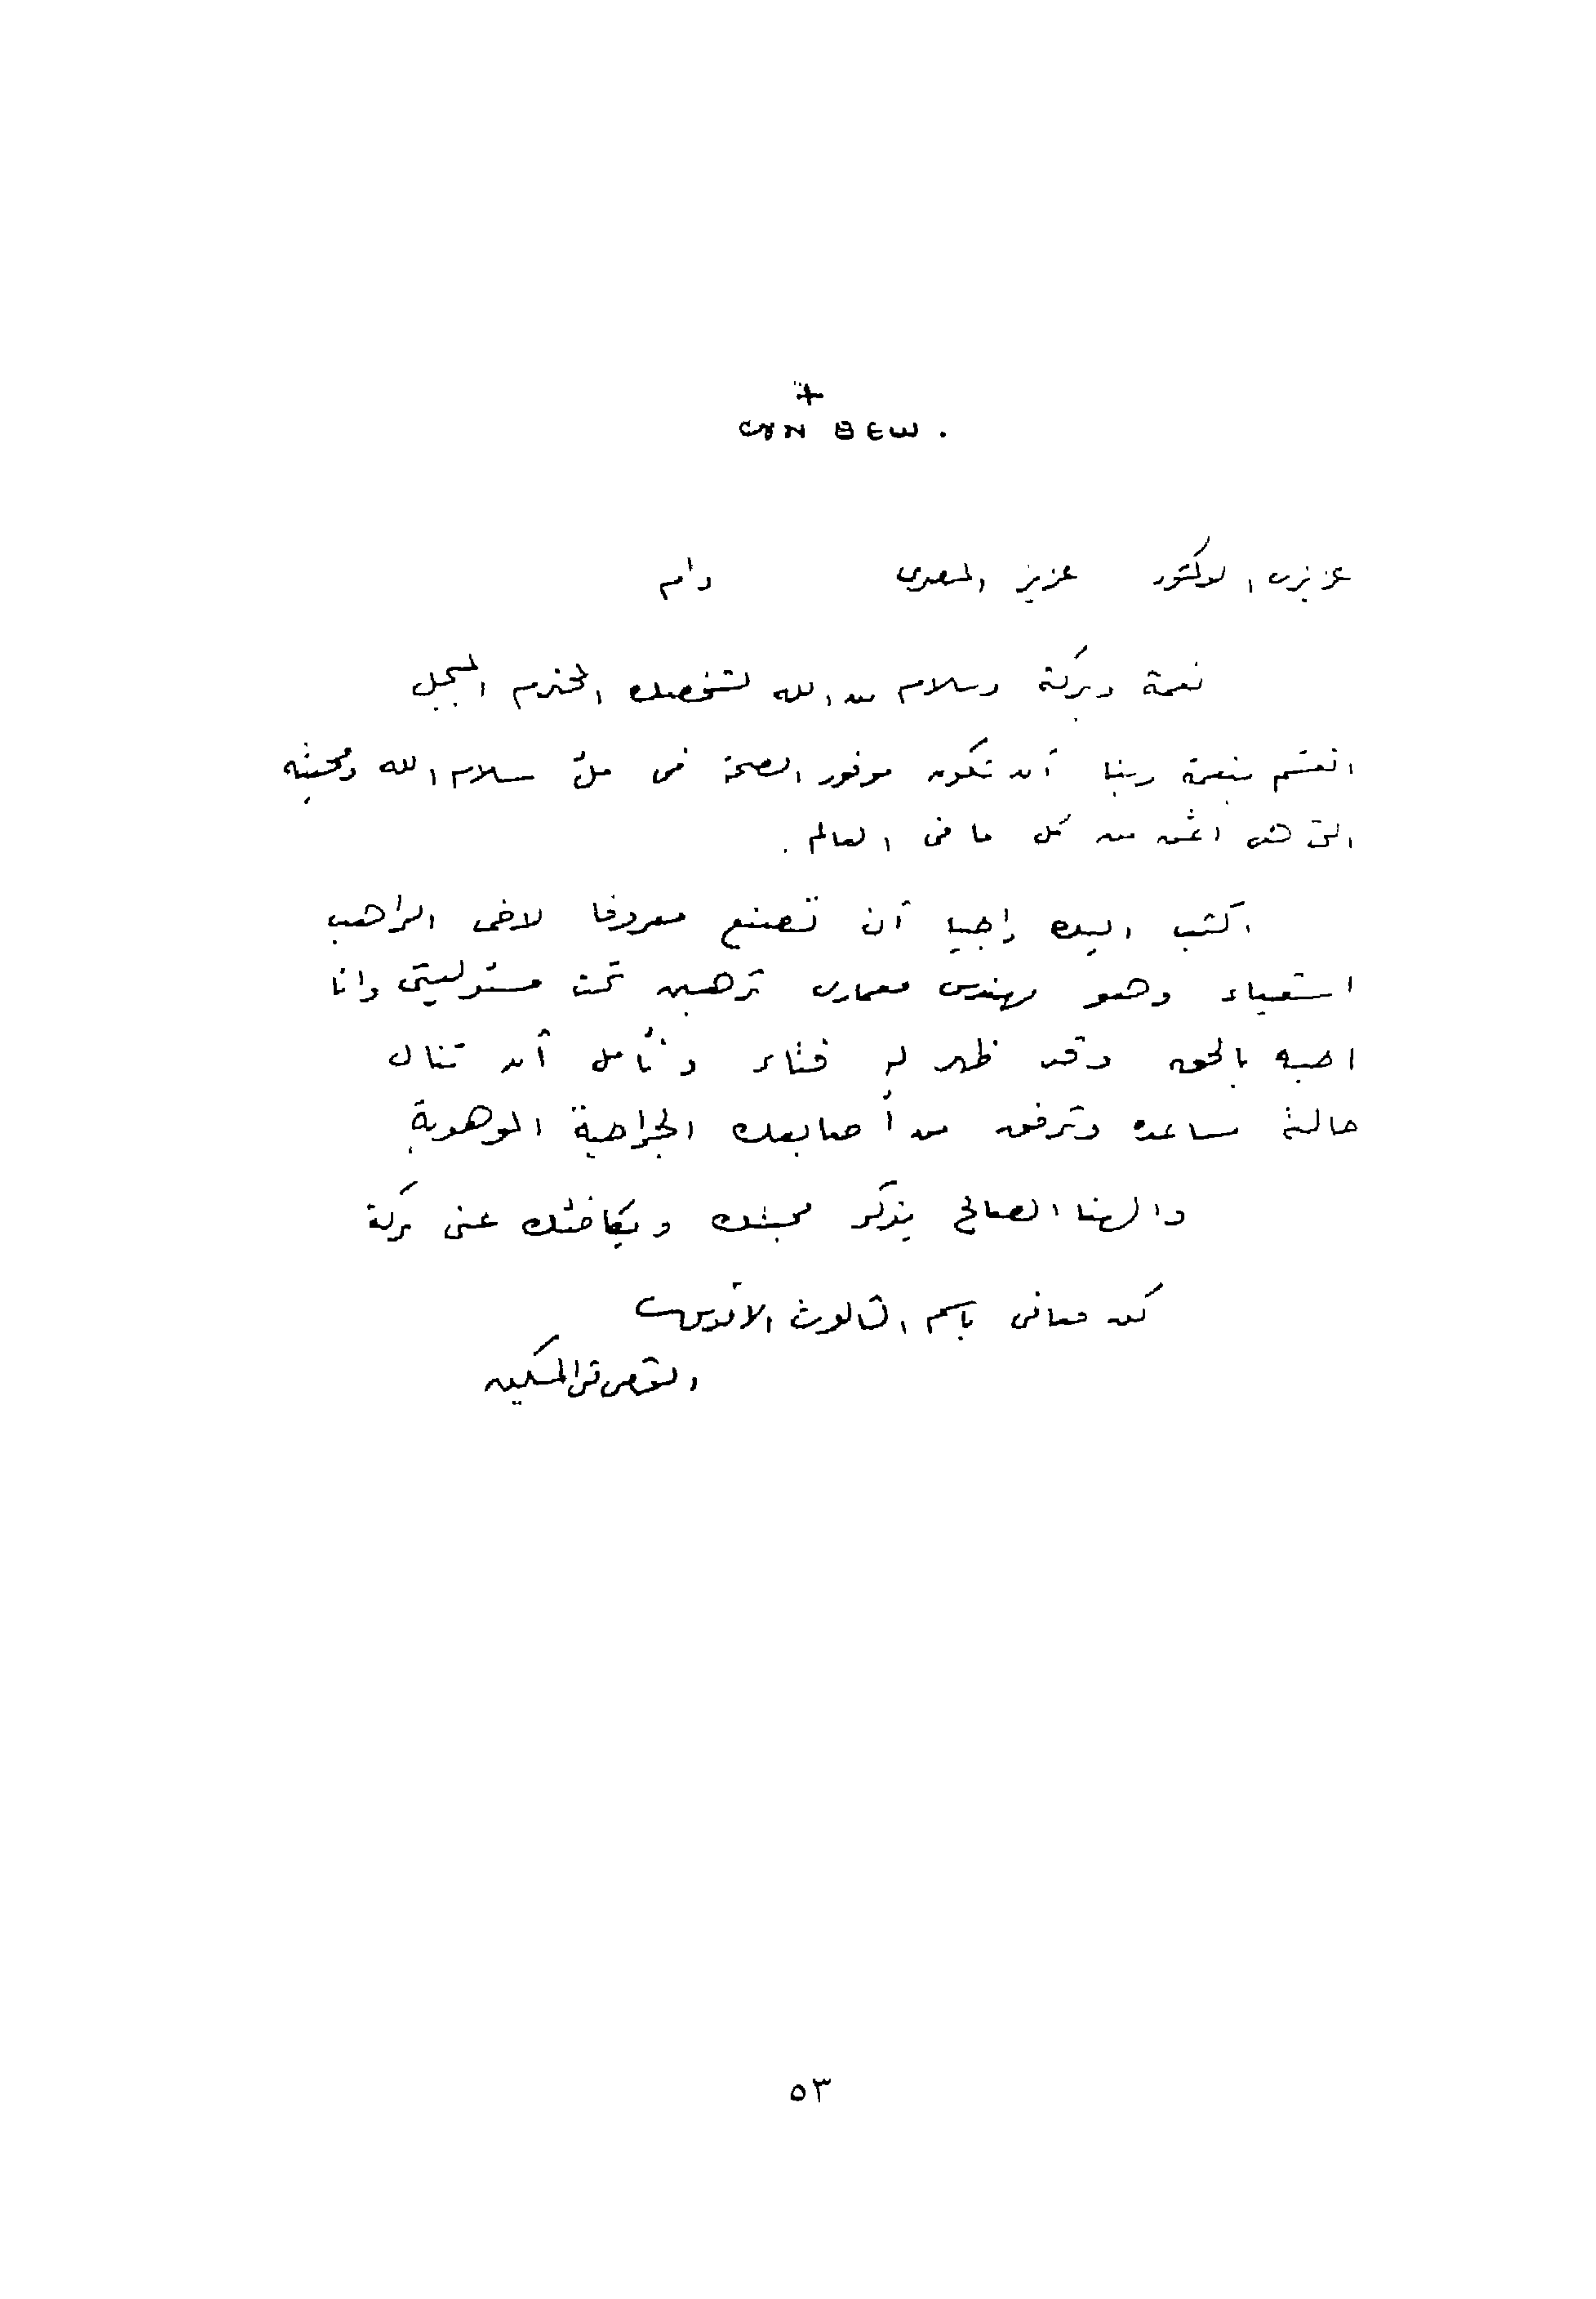 +
CYN ΘΕѠ .
عزيزى الدكتور عزيز المصرى دام
نعمة وبركة وسلام من الله لشخصك المحترم المبجل
انعشم بنعمة ربنا أن تكون موفور الصحة فى ملء سلام الله ومحبته
التى هى اثمن من كل ما فى العالم .
اكتب اليك راجيا أن تصنع معروفا لاخى الراهب
اشعياء وهو مهندس معمارى ترهبن تحت مسئوليتى وانا
احبه بالحق وقد ظهر له فتاء ونأمل أن تنال
حالته مساعده وترفق من أصابعك الجراحية الموهوبة
والهنا الصالح يذكر محبتك ويكافئك عنى بركة
كن معانى باسم الثالوث الاقدس
القمص متى المسكين
٥٣